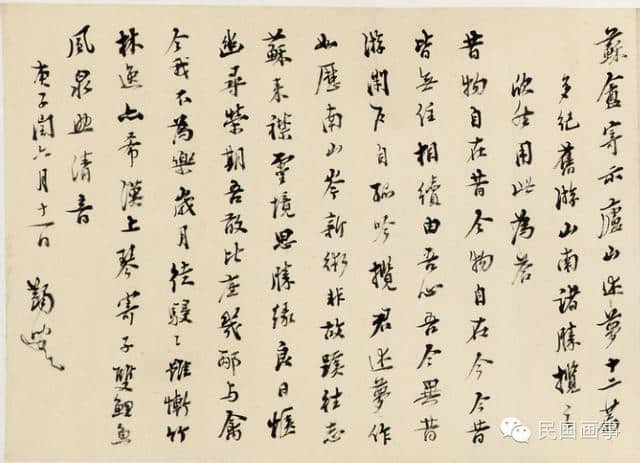 蘇盦寄示廬山述夢十二首
多紀舊游山南諸勝攬之
欣然用此為荅
昔物自在昔今物自在今今昔
皆無住相續由吾心吾今異昔
游閉戶自孤吟攬君述夢作
如歷南山岑新術非故蹊往志
蘇來襟靈境思勝緣良日愜
幽尋榮期吾敢比庶幾邴與禽
今我不為樂歲月徒駸〻雖慚竹
林逸亦希漢上琴寄子雙鯉魚
風泉清音
庚子閏六月十一日
蠲叟
民国画事